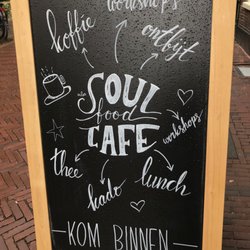 workshops
koffie
ontbijt
SOUL
food
CAFE
workshops
thee
kado
lunch
KOM BINNEN